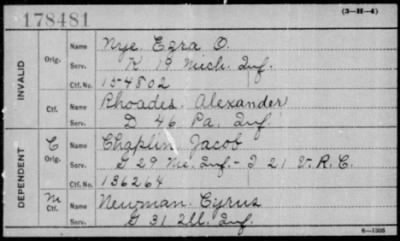 178481 (3-H-4)
INVALID
Orig. Name Nye Ezra O.
Serv. K 19 Mich. Inf.
Ctf. No. 154802
Ctf. Name Rhoades, Alexander
Serv. D 46 Pa. Inf.
DEPENDENT
C Orig. Name Chaplin Jacob
Serv. G 29 Me. Inf. - I 21 V.R.C.
Ctf. No. 136264
M Ctf. Name Newman Cyrus
Serv. G 31 Ill. Inf.